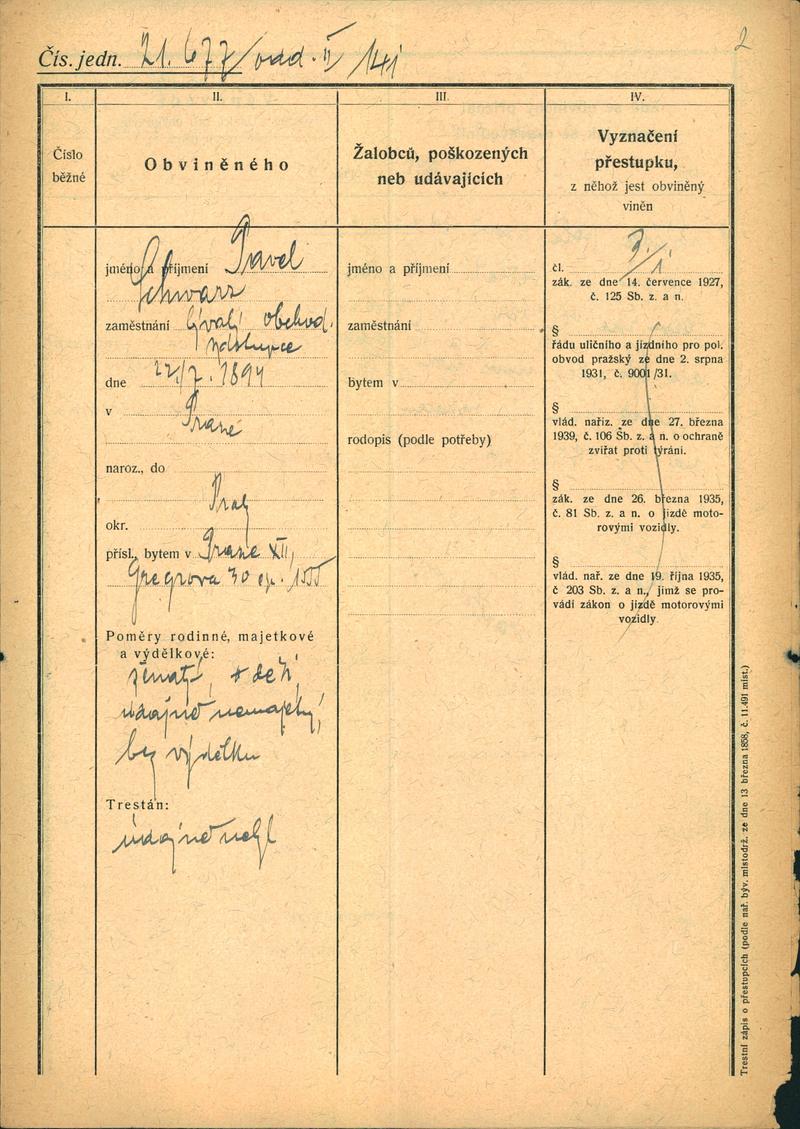 2
Čís. jedn. 21.677/odd. II/41
I.
Číslo
běžné
II.
Obviněného
jméno a příjmení Pavel
Schwarz
zaměstnání bývalý obchod.
zástupce
dne 22/7. 1894
v Praze
naroz., do
Prahy
okr.
přísl., bytem v Praze XII,
Gregrova 30 čp. 1555
Poměry rodinné, majetkové
a výdělkové:
ženatý, dětí,
údajně nemajetný,
bez výdělku
Trestán:
údajně nebyl
III.
Žalobců, poškozených
neb udávajících
jméno a příjmení
zaměstnání
bytem v
rodopis (podle potřeby)
IV.
Vyznačení
přestupku,
z něhož jest obviněný
viněn
čl. 3/1
zák. ze dne 14. července 1927,
č. 125 Sb. z. a n.
§
řádu uličního a jízdního pro pol.
obvod pražský ze dne 2. srpna
1931, č. 9001/31.
§
vlád. naříz. ze dne 27. března
1939, č. 106 Sb. z. a n. o ochraně
zvířat proti týrání.
§
zák. ze dne 26. března 1935,
č. 81 Sb. z. a n. o jízdě moto-
rovými vozidly.
§
vlád. nař. ze dne 19. října 1935,
č 203 Sb. z. a n., jímž se pro-
vádí zákon o jízdě motorovými
vozidly.
Trestní zápis o přestupcích (podle nař. býv. místodrž. ze dne 13 března 1858, č. 11.491 míst.)